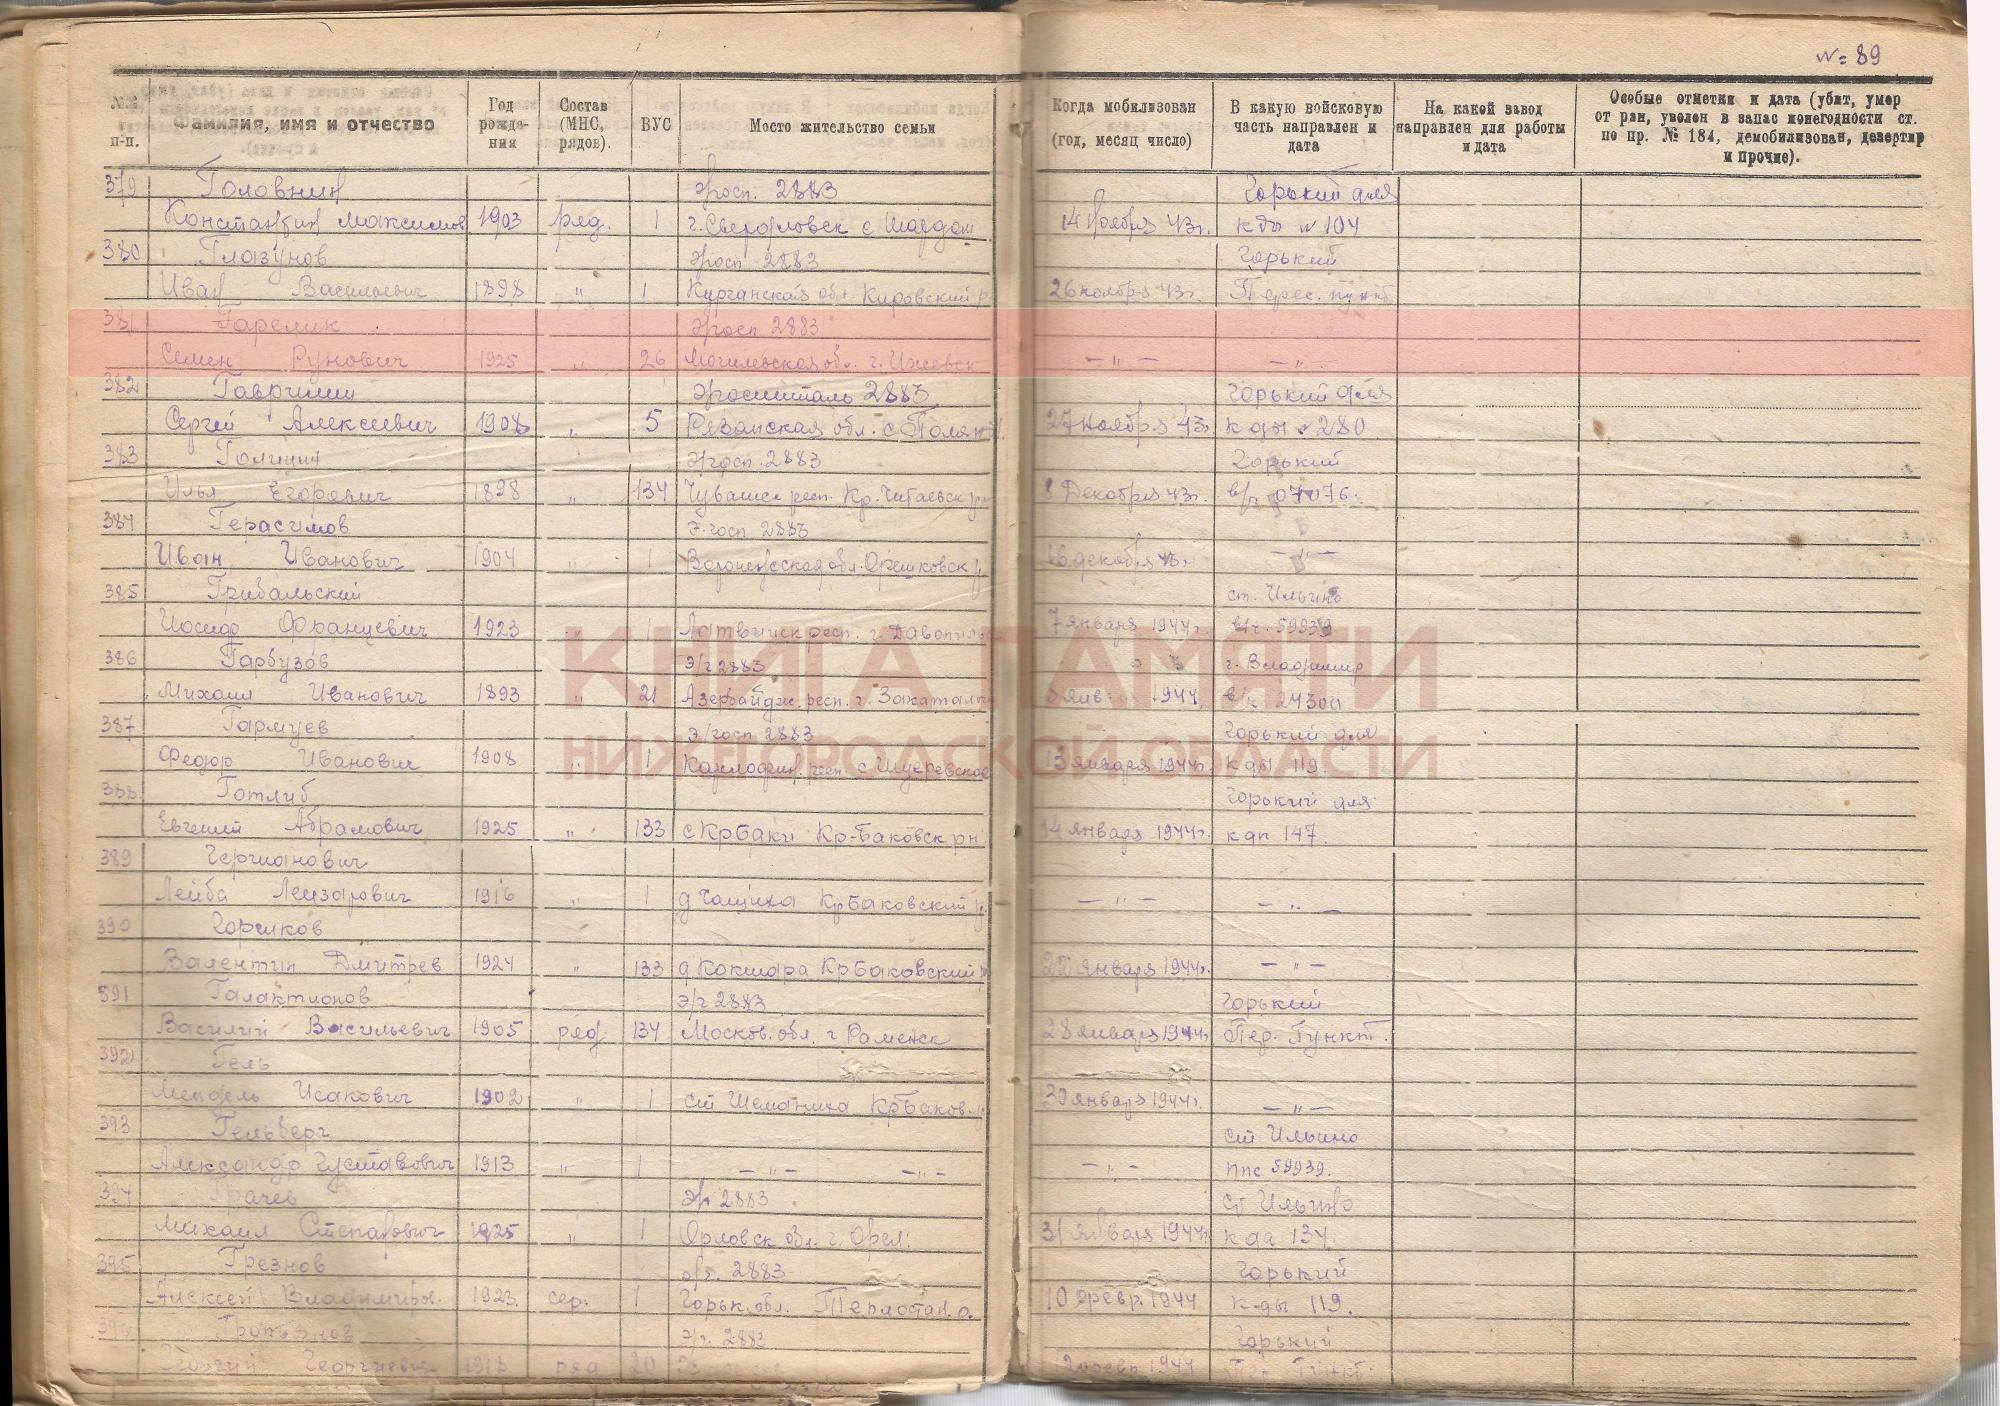 № 89
№№ п-п.
Фамилия, имя и отчество
Год рожде- ния
Состав (МНС, рядов).
ВУС
Мосто жительство семьи
Когда мобилизован (год, месяц число)
В какую войсковую часть направлен и дата
На какой завод направлен для работы и дата
Особые отметки и дата (убит, умер от ран, уволен в запас конегодности ст. по пр. № 184, демобилизован, дезертир и прочие).
379 Головнин Эгосп. 2883 Горький для
Константин Максимов 1903 ряд. 1 г. Свердловск с 14 ноября 43г. кды № 104
380 Глазунов Эгосп 2883 Горький
Иван Васильевич 1898 " 1 Курганская обл. Кировский р 26 ноября 43г. Перес. пункт
381 Гарелик Эгосп 2883
Семен Рунович 1925 " 26 Могилевская об. г. Ижевск — " — — " —
382 Гаврилин Эгоспиталь 2883 Горький для
Сергей Алексеевич 1908 " 5 Рязанская обл. с Поляны 27 ноября 43г. кды № 280
383 Голицин Эгосп. 2883 Горький
Илья Егорович 1898 " 134 Чувашск респ. Кр. Читаевск 8 Декабря 43г. в/ч 07076.
384 Герасимов Э.госп 2883
Иван Иванович 1904 " 1 Воронежская обл. 16 декабря 43г. — " —
385 Грибальский ст. Ильино
Иосиф Францевич 1923 " 1 Латвийск респ. г. 7 января 1944г. в/ч. 59939
386 Гарбузов Э/г 2883 г. Владимир
Михаил Иванович 1893 " 21 Азербайдж. респ. г. Закаталы 8 янв 1944 в/ч 24300
387 Гармуев Э/госп 2883 Горький для
Федор Иванович 1908 " 1 13 января 1944г. кды 119.
388 Готлиб Горький для
Евгений Абрамович 1925 " 133 с Кр Баки Кр-Баковск рн. 14 января 1944г. к дп 147.
389 Германович
Лейба Лейзарович 1916 " 1 д Кр Баковский р. — " — — " —
390 Горшков
Валентин Дмитрев 1924 " 133 д Кокшара Кр Баковский 22 января 1944г. — " —
391 Галактионов Э/г 2883 Горький
Василий Васильевич 1905 ряд. 134 Москов. обл. г Раменск 28 января 1944г. Пер. Пункт.
392 Гель
Мендель Исакович 1902 " 1 ст Шеманиха Кр Баков. 30 января 1944г. — " —
393 Гельберг ст Ильино
Александр Густавович 1913 " 1 — " — — " — — " — ппс 59939.
394 Грачев Э/г 2883 Ст Ильино
Михаил Степанович 1925 " 1 Орловск обл. г. Орел. 31 января 1944г. к да 134.
395 Грезнов 2883 Горький
Алексей Владимиров. 1923 сер. 1 Горьк. обл. Теплостан. р. 10 февр. 1944 к-ды 119.
Э/г. 2883 Горький
Георгий Георгиевич 1913 ряд 20 1944
КНИГА ПАМЯТИ
НИЖЕГОРОДСКОЙ ОБЛАСТИ